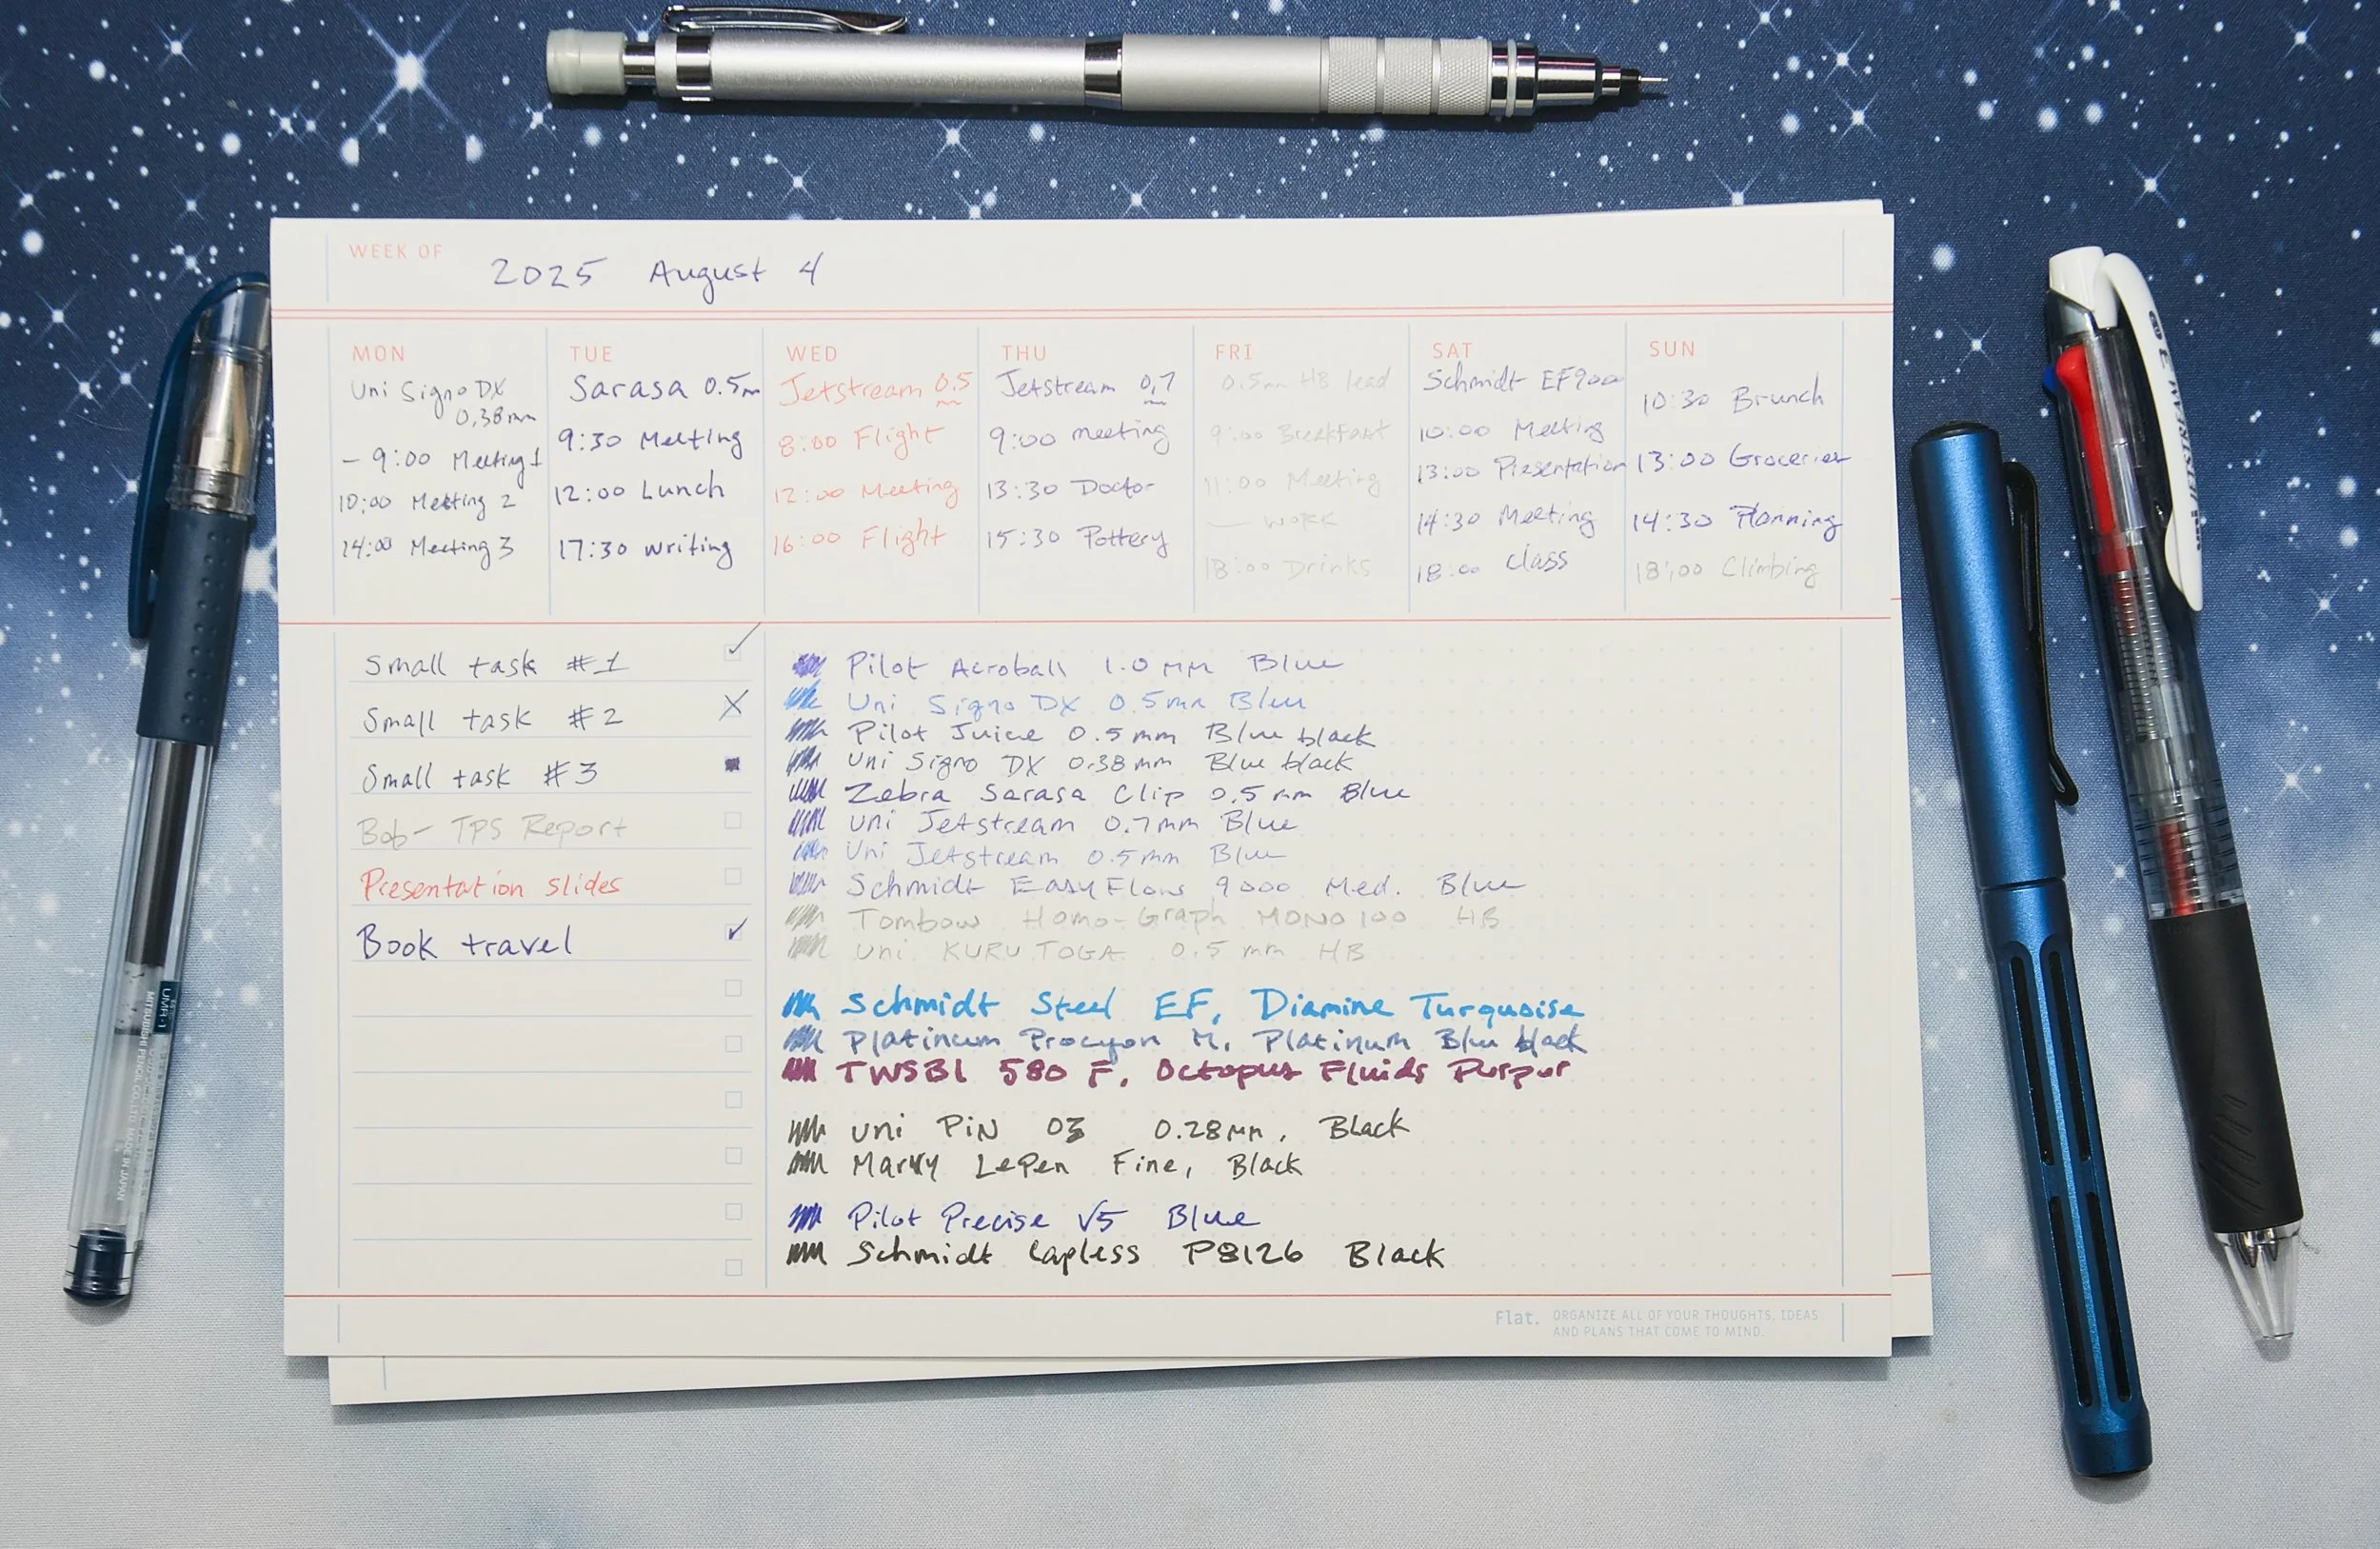 WEEK OF 2025 August 4
MON
Uni Signo DX
0.38mm
- 9:00 Meeting 1
10:00 Meeting 2
14:00 Meeting 3
TUE
Sarasa 0.5m
9:30 Meeting
12:00 Lunch
17:30 writing
WED
Jetstream 0.5
8:00 Flight
12:00 Meeting
16:00 Flight
THU
Jetstream 0.7
9:00 meeting
13:30 Doctor
15:30 Pottery
FRI
0.5mm HB lead
9:00 Breakfast
11:00 Meeting
— work
18:00 Drinks
SAT
Schmidt EF9000
10:00 Meeting
13:00 Presentation
14:30 Meeting
18:00 class
SUN
10:30 Brunch
13:00 Groceries
14:30 Planning
18:00 Climbing
Small task #1
Small task #2
Small task #3
Bob - TPS Report
Presentation slides
Book travel
Pilot Acroball 1.0 mm Blue
Uni Signo DX 0.5mm Blue
Pilot Juice 0.5mm Blue black
Uni Signo DX 0.38mm Blue black
Zebra Sarasa Clip 0.5mm Blue
Uni Jetstream 0.7mm Blue
Uni Jetstream 0.5mm Blue
Schmidt EasyFlow 9000 Med. Blue
Tombow Homo-Graph MONO 100 HB
Uni KURU TOGA 0.5 mm HB
Schmidt Steel EF, Diamine Turquoise
Platinum Procyon M, Platinum Blue black
TWSBI 580 F, Octopus Fluids Purpur
Uni PiN 03 0.28mm, Black
Marvy LePen Fine, Black
Pilot Precise V5 Blue
Schmidt Capless P8126 Black
Flat. ORGANIZE ALL OF YOUR THOUGHTS, IDEAS
AND PLANS THAT COME TO MIND.
UMR-1